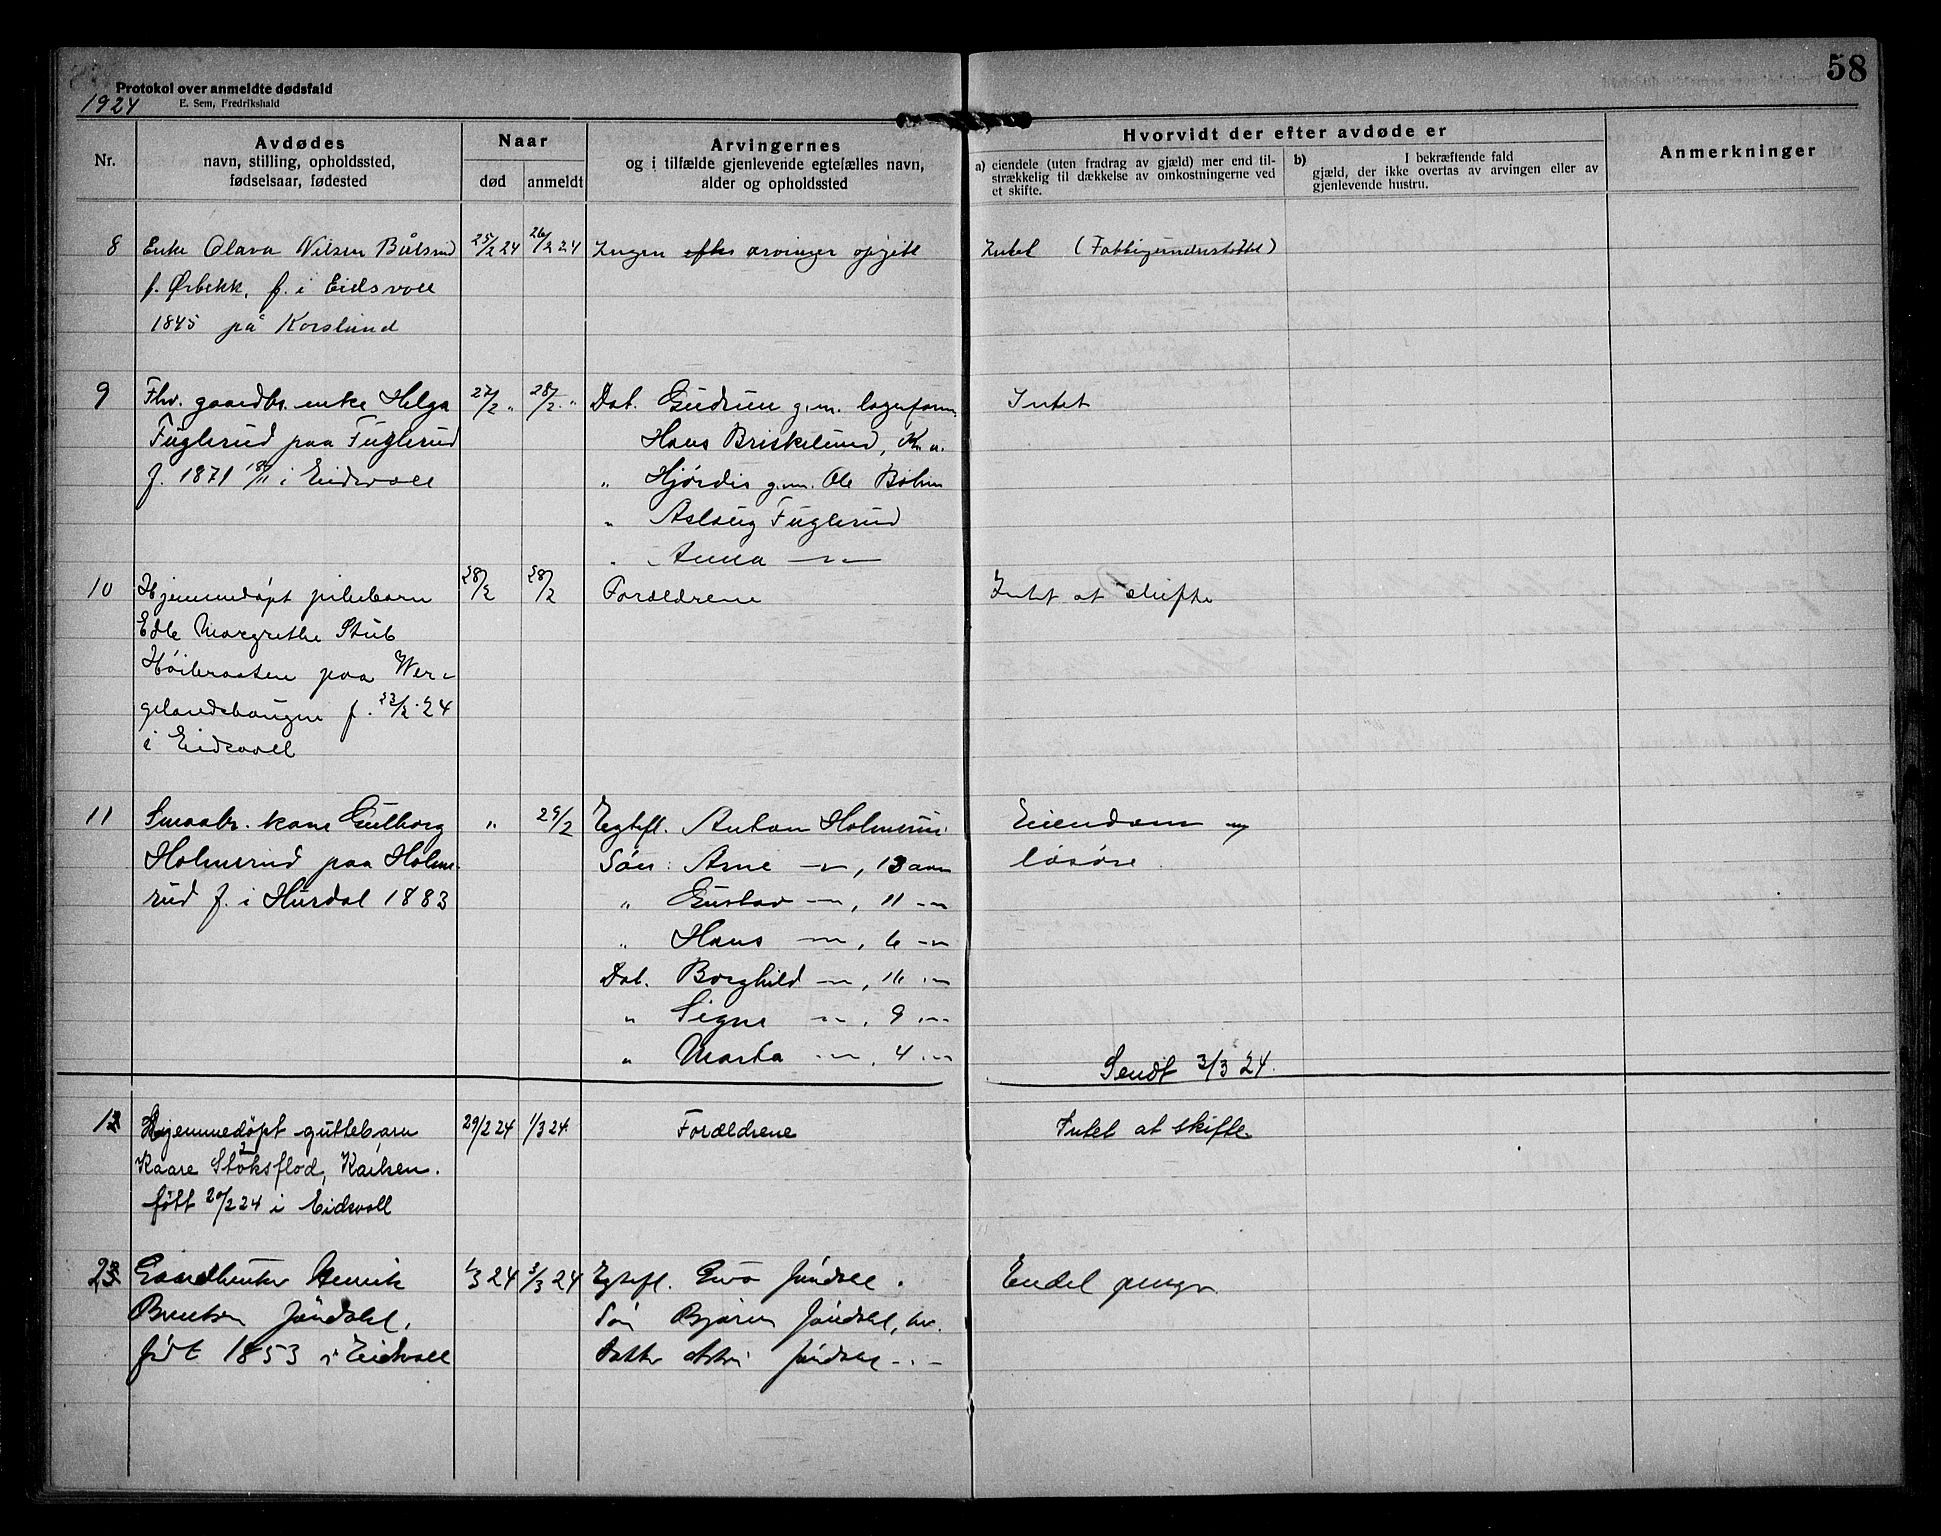 58
Protokol over anmeldte dødsfald
E. Sem, Fredrikshald
1924
Nr.
Avdødes
navn, stilling, opholdssted,
fødselsaar, fødested
Naar
død
anmeldt
Arvingernes
og i tilfælde gjenlevende egtefælles navn,
alder og opholdssted
Hvorvidt der efter avdøde er
a) eiendele (uten fradrag av gjæld) mer end til-
strækkelig til dækkelse av omkostningerne ved
et skifte.
b) I bekræftende fald
gjæld, der ikke overtas av arvingen eller av
gjenlevende hustru.
Anmerkninger
8 Enke Olava Nilsen Bålsrud 25/2 24 26/2 24 Ingen arvinger opgitt Intet (Fattigunderstøttet)
f. Ørbekk, f. i Eidsvoll
1845 på Korslund
9 Fhv. gaardbr. enke Helga 27/2 " 28/2 " Dat. Gudrun g.m. lagerform. Intet
Fuglerud paa Fuglerud Hans Briskelund,
f. 1871 18/11 i Eidsvoll " Hjørdis g.m. Ole Bøhm
" Aslaug Fuglerud
" Anna —"—
10 Hjemmedøpt pikebarn 28/2 28/2 Forældrene Intet at skifte
Edle Margrethe Stub
Høibraaten paa Wer-
gelandshaugen f. 23/2 24
i Eidsvoll
11 Smaabr. kone Gulborg " 29/2 Egtefl. Anton Holmerud Eiendom og
Holmerud paa Holme- Søn: Arne —"—, 13 aar løsøre.
rud f. i Hurdal 1883 " Gustav —"—, 11 —"—
" Hans —"—, 6 —"—
Dat. Borghild —"—, 16 —"—
" Signe —"—, 9 —"—
" Marta —"—, 4 —"—
Sendt 3/3 24.
12 Hjemmedøpt guttebarn 29/2 24 1/3 24. Forældrene Intet at skifte
Kaare Støksflod, Karlsen.
født 20/2 24 i Eidsvoll
Gaardbruker Henrik 1/3 24 3/3 24 Egtefl. Eva Jøndal. Endel penge
Berntsen Jøndal. Søn Bjarne Jøndal,
født 1853 i Eidsvoll Datter Jøndal —"—